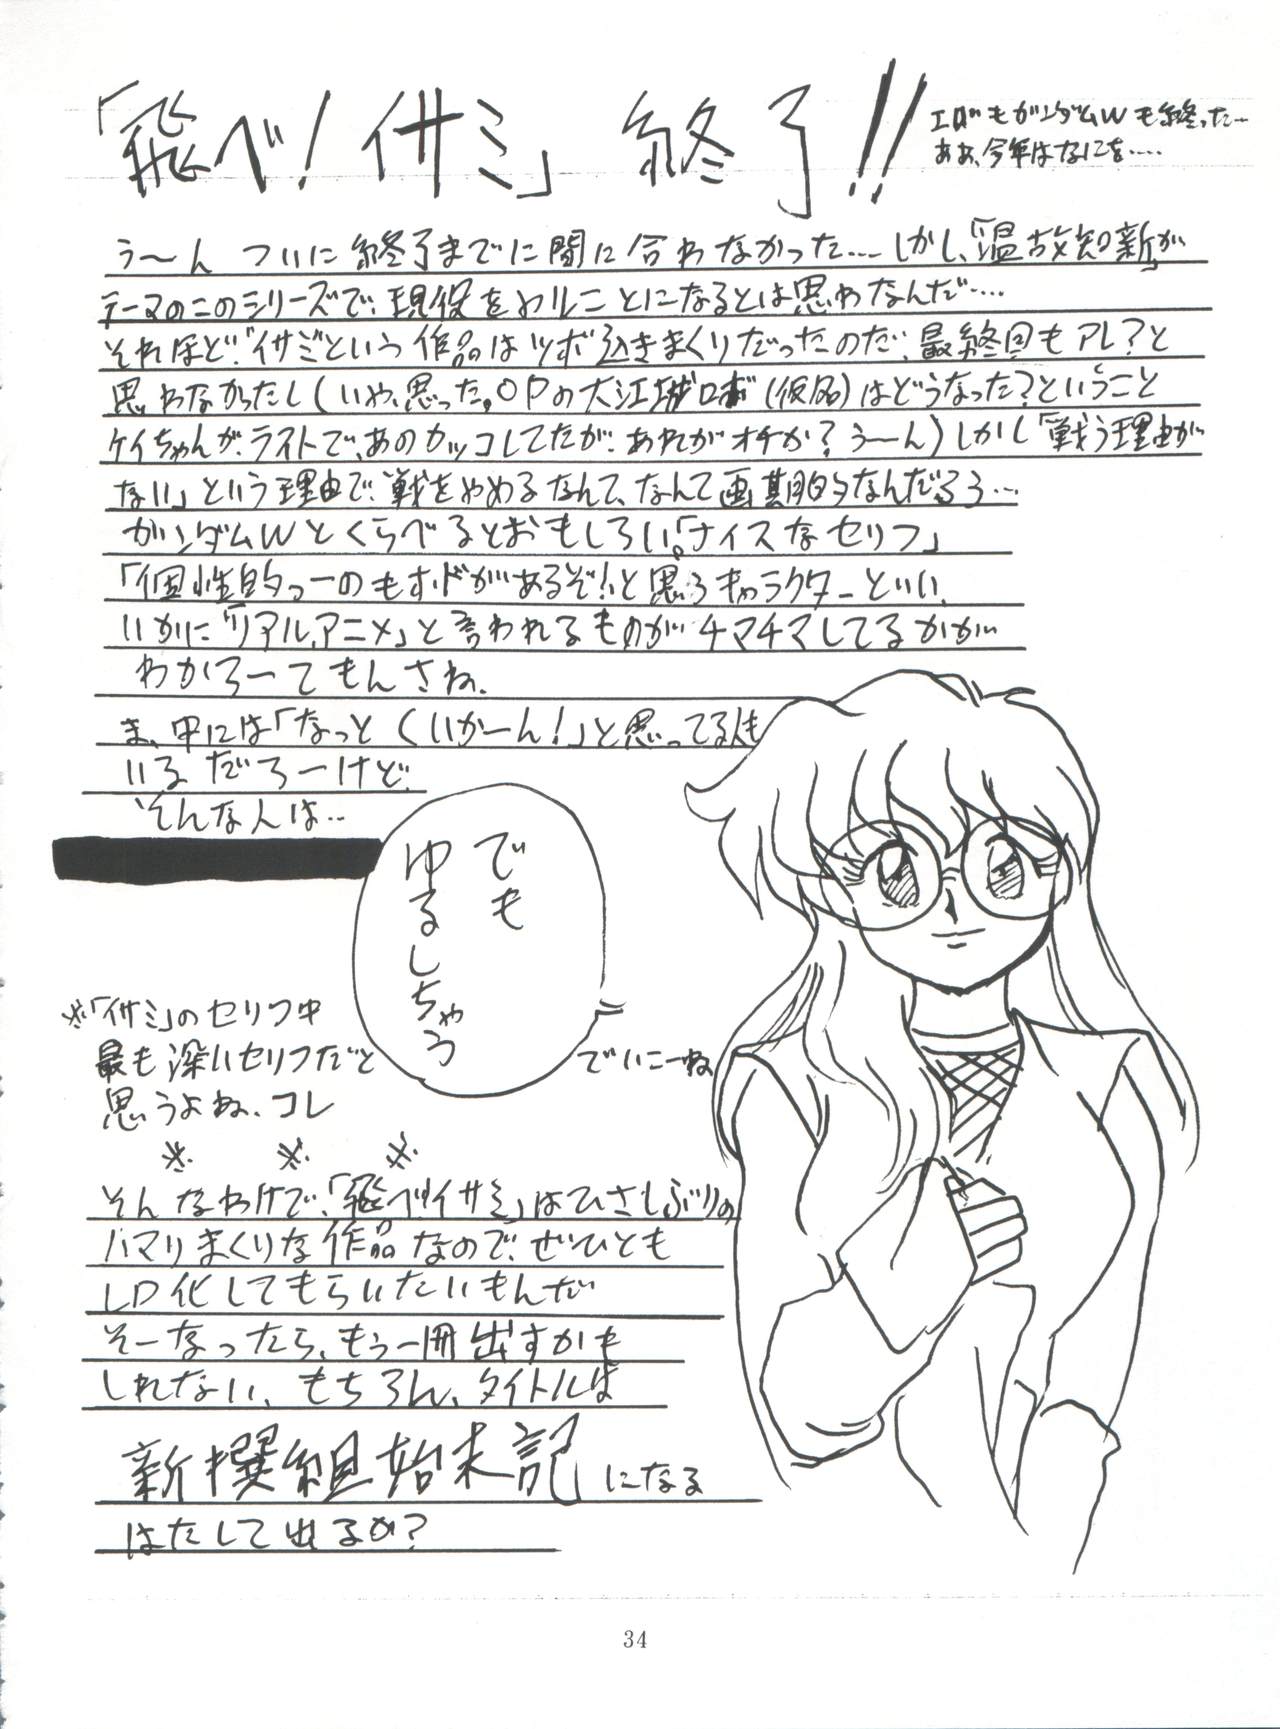 「飛べ!イサミ」終了!!
エヴァもガンダムWも終った…
ああ、今年はなにを‥‥
う〜ん ついに終了までに間に合わなかった‥‥しかし、「温故知新」が
テーマのこのシリーズで、現役をやルことになるとは思わなんだ‥‥
それほど「イサミ」という作品はツボ込きまくりだったのだ、最終回もアレ?と
思わなかったし(いや、思った。OPの大江城ロボ(仮名)はどうなった?ということと
ケイちゃんが、ライトで、あのカッコしてたが、あれがオチか?う〜ん)しかし「戦う理由が
ない」という理由で、戦をやめるなんて、なんて画期的なんだろう…
ガンダムWとくらべるとおもしろい。「ナイスなセリフ」
「個性的っーのもホドがあるぞ!」と思うキャラクターといい、
いかに「リアルアニメ」と言われるものがチマチマしてるかが
わかろーてもんさね、
ま、中には「なっとくいかーん!」と思ってる人も
いるだろーけど、
そんな人は‥
でも
ゆるしちゃう
でいこーね
※「イサミ」のセリフ中
最も深いセリフだと
思うよね、コレ
※ ※ ※
そんなわけで、「飛べ!イサミ」はひさしぶりの
ハマりまくりな作品なので、ぜひとも
LD化してもらいたいもんだ
そーなったら、もう一冊出すかも
しれない、もちろん、タイトルは
新撰組始末記になる
はたして出るか?
34